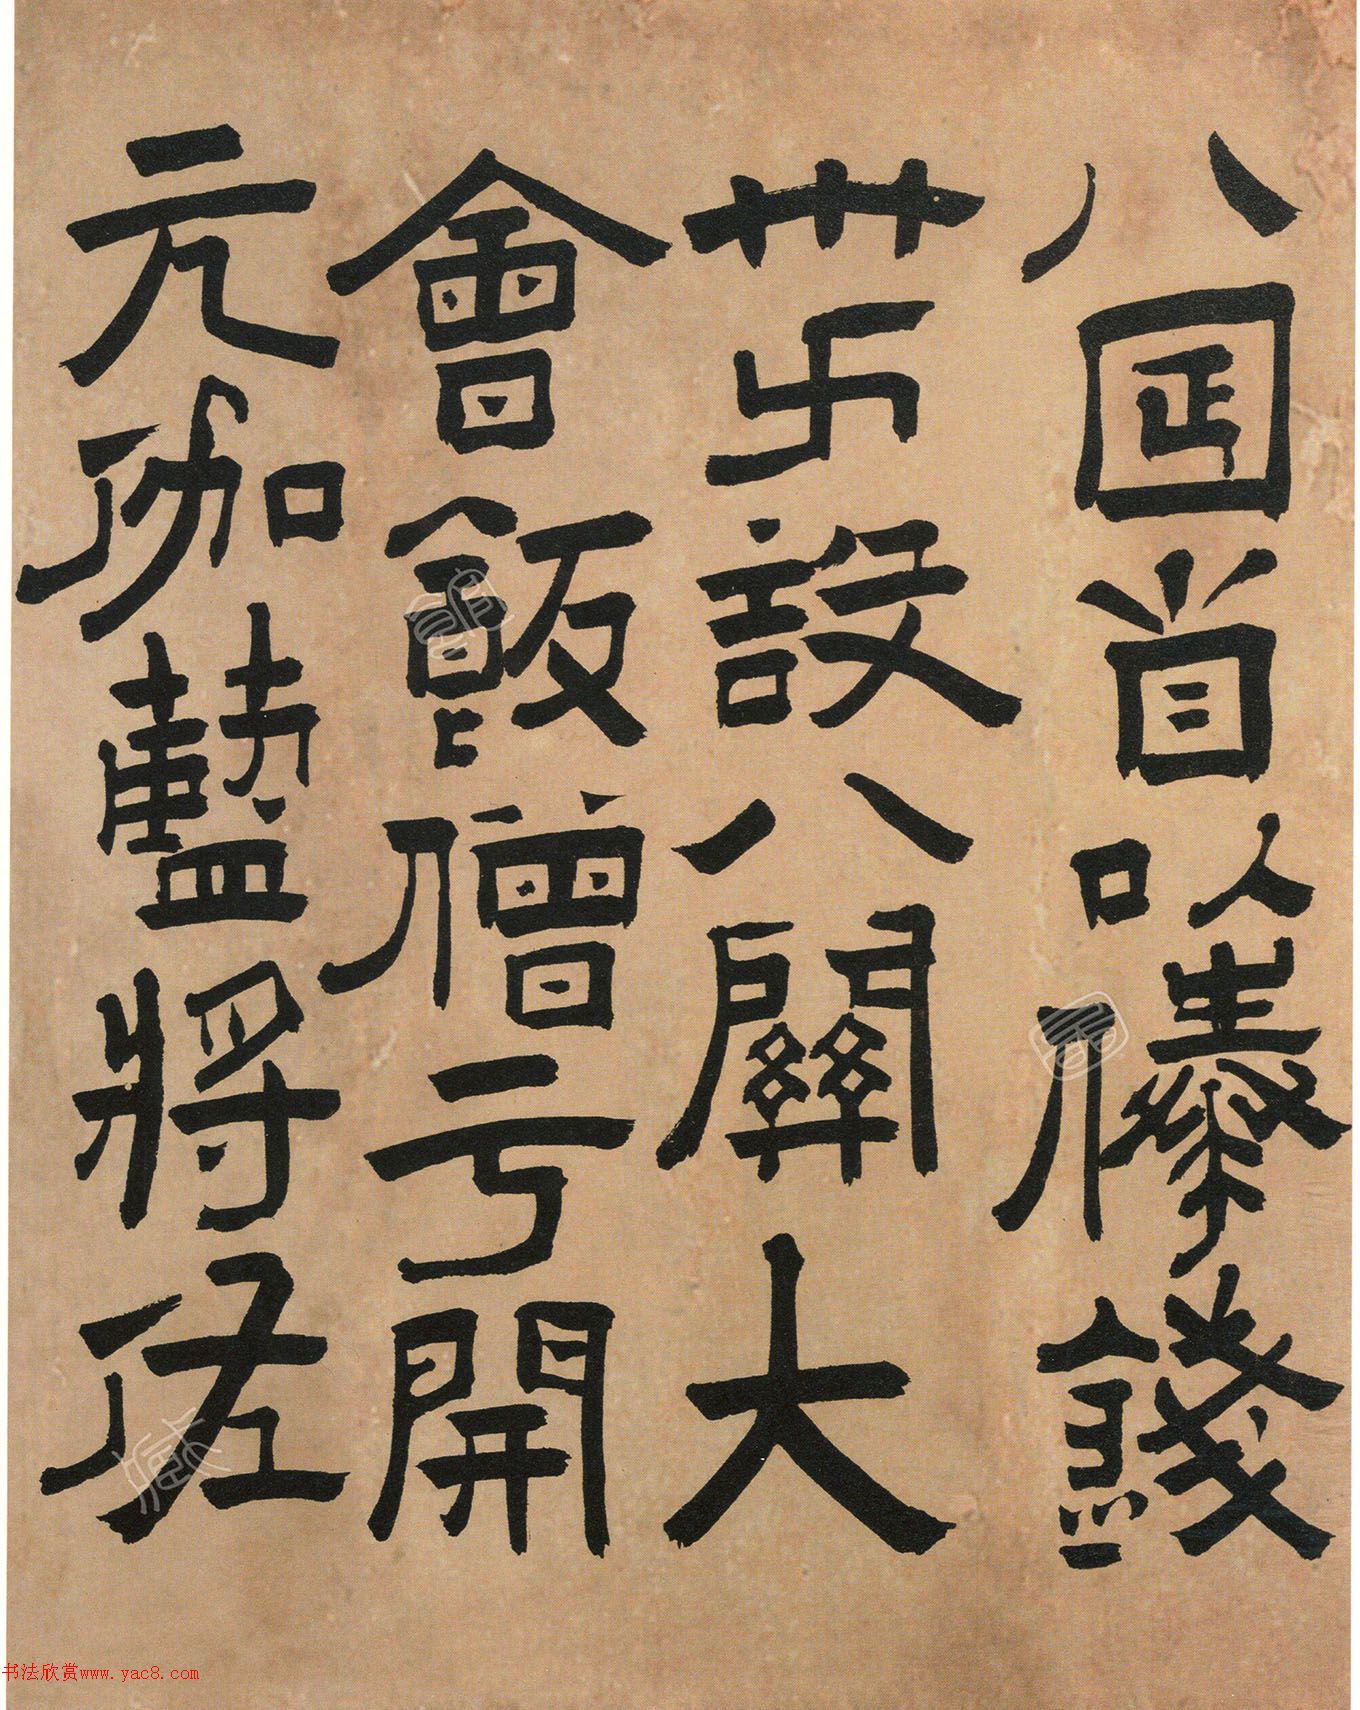 八囸首以俸錢
卅卐設八關大
會飯僧亏開
元伽藍將佐
书法欣赏www.yac8.com